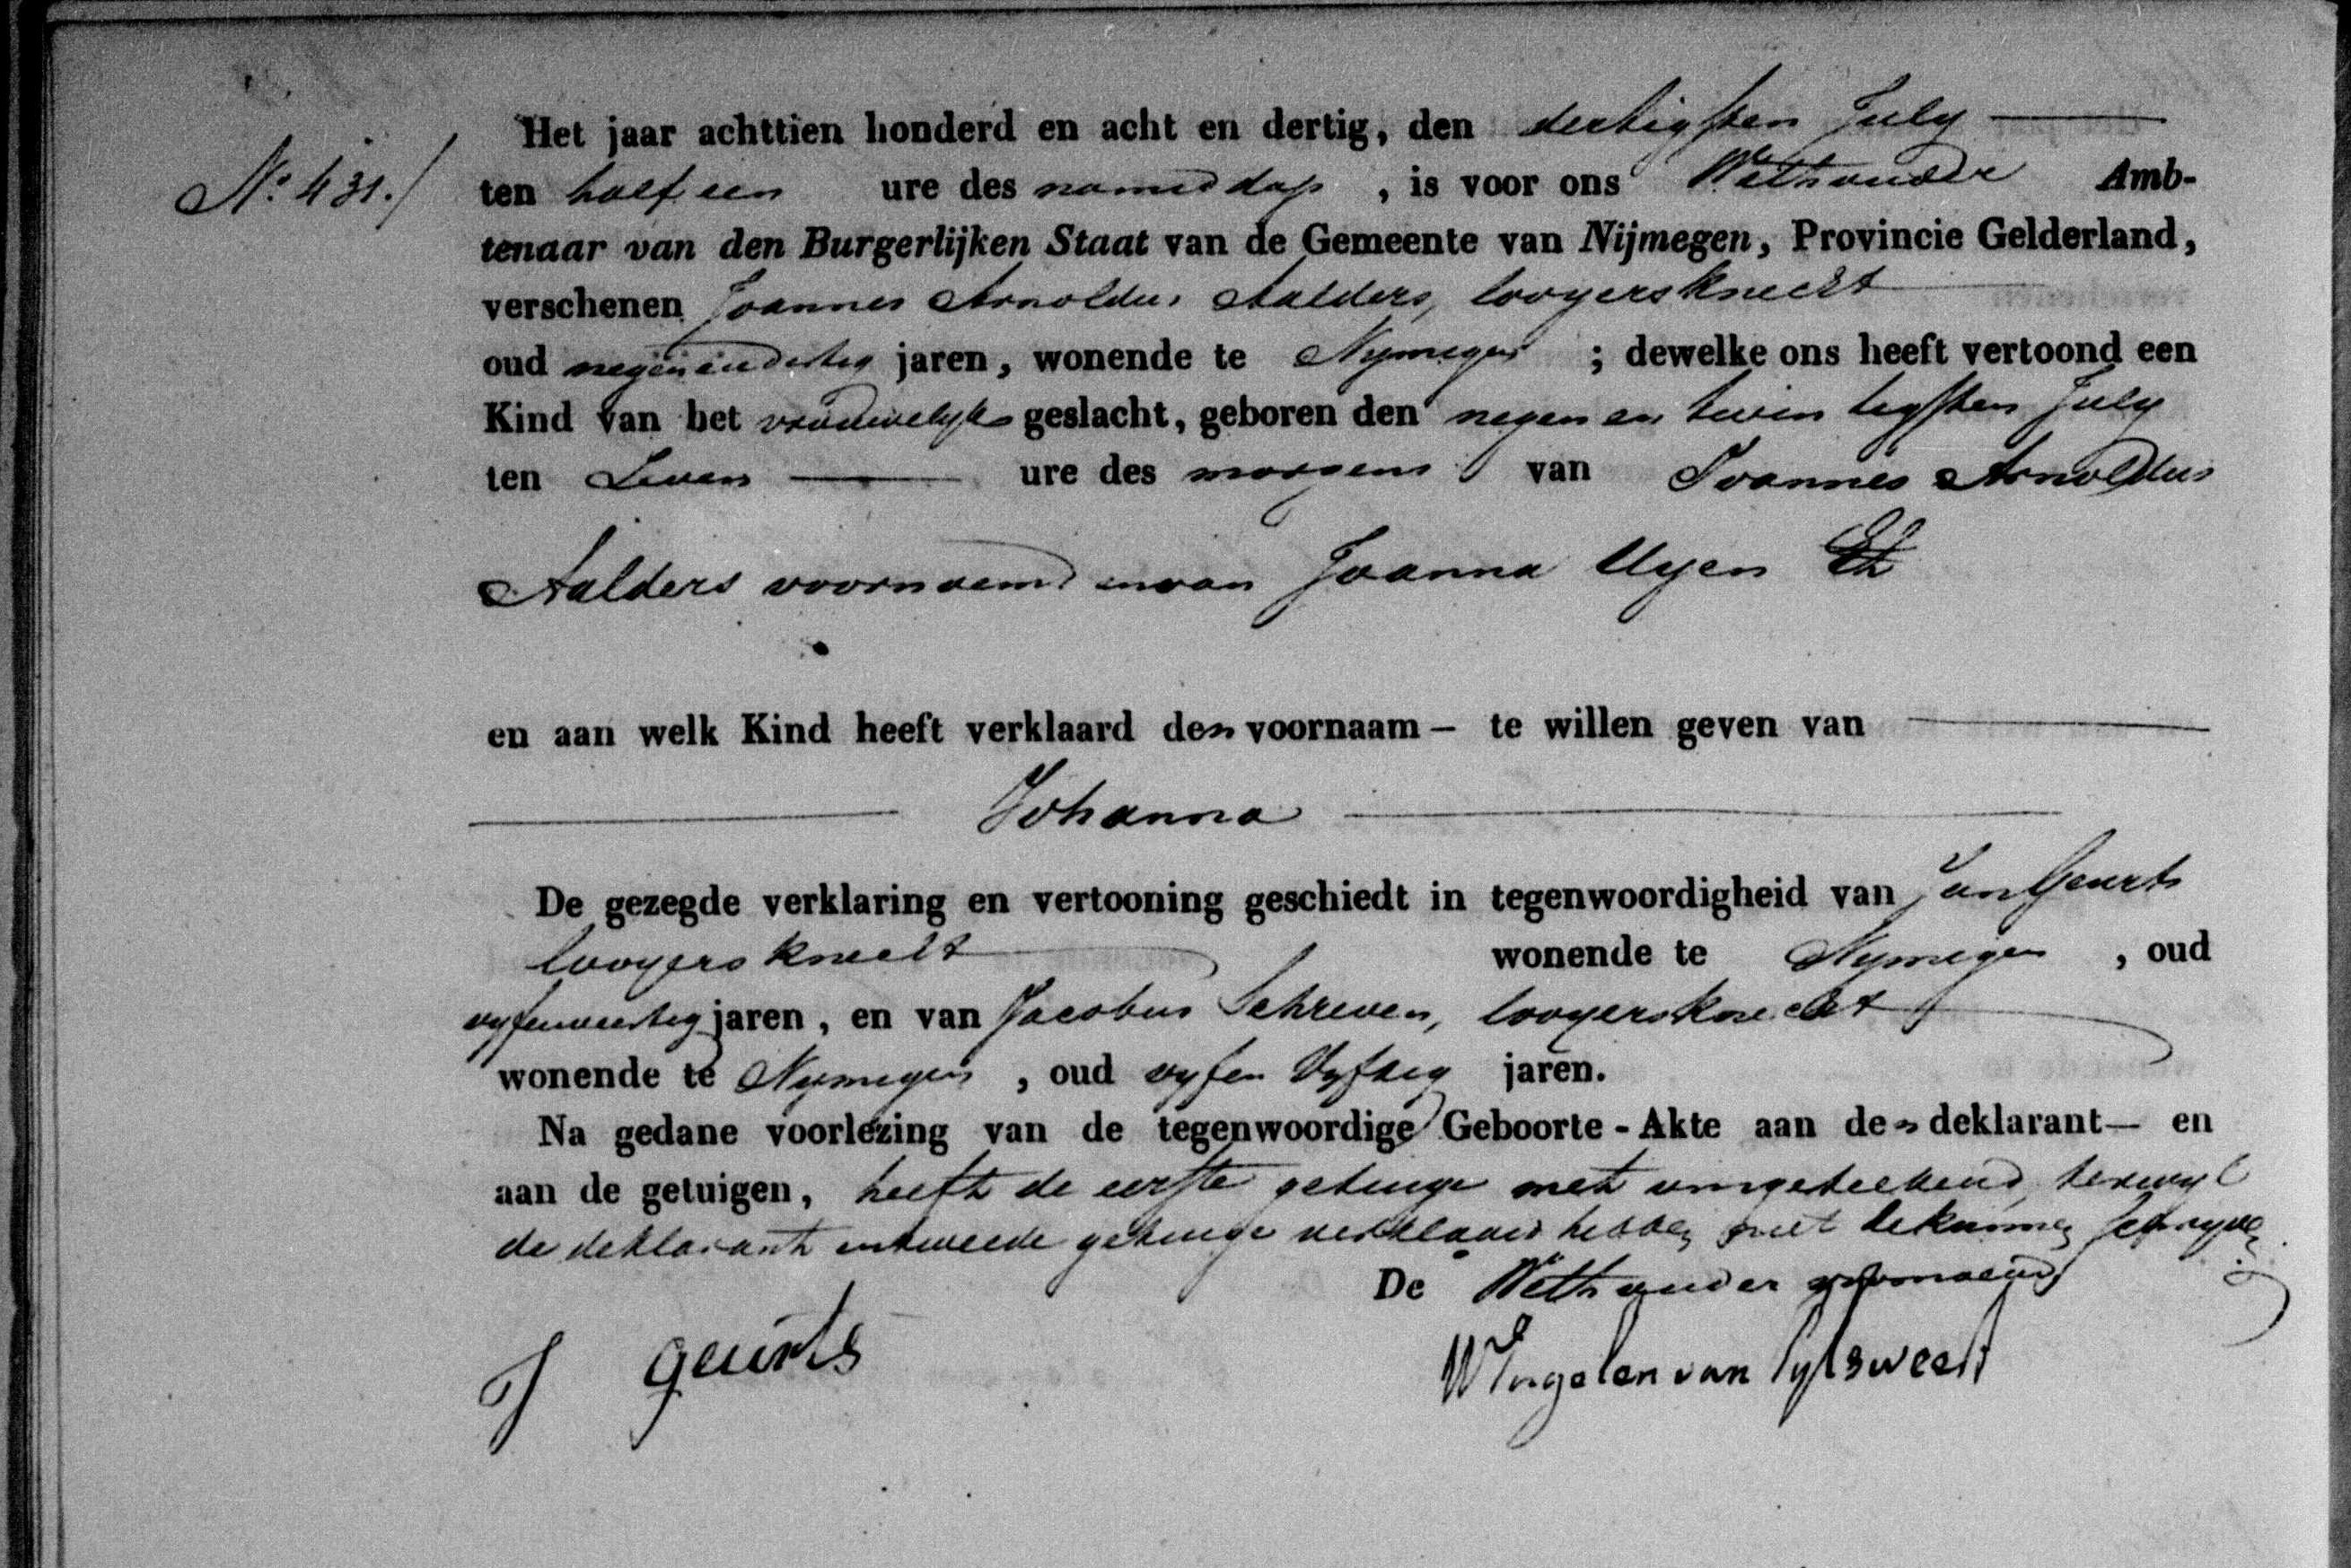 Het jaar achttien honderd en acht en dertig, den dertigsten July
No. 431. / ten half een ure des namiddags, is voor ons Wethouder Amb-
tenaar van den Burgerlijken Staat van de Gemeente van Nijmegen, Provincie Gelderland,
verschenen Joannes Arnoldus Aalders, looyersknecht
oud negenendertig jaren, wonende te Nymegen ; dewelke ons heeft vertoond een
Kind van het vrouwelyk geslacht, geboren den negen en twintigsten July
ten Seven ure des morgens van Joannes Arnoldus
Aalders voornoemd en van Joanna Uyen
en aan welk Kind heeft verklaard den voornaam – te willen geven van
Johanna
De gezegde verklaring en vertooning geschiedt in tegenwoordigheid van Jan Geurts
looyersknecht wonende te Nymegen, oud
vyfenveertig jaren, en van Jacobus Schreven, looyersknecht
wonende te Nymegen, oud vyfen Vyftig jaren.
Na gedane voorlezing van de tegenwoordige Geboorte-Akte aan den deklarant— en
aan de getuigen, heeft de eerste getuige met ons geteekend, terwyl
de deklarant en tweede getuige verklaard hebben niet te kunnen schryven
De Wethouder voornoemd
J geurts
W Ingelen van Sylsweert